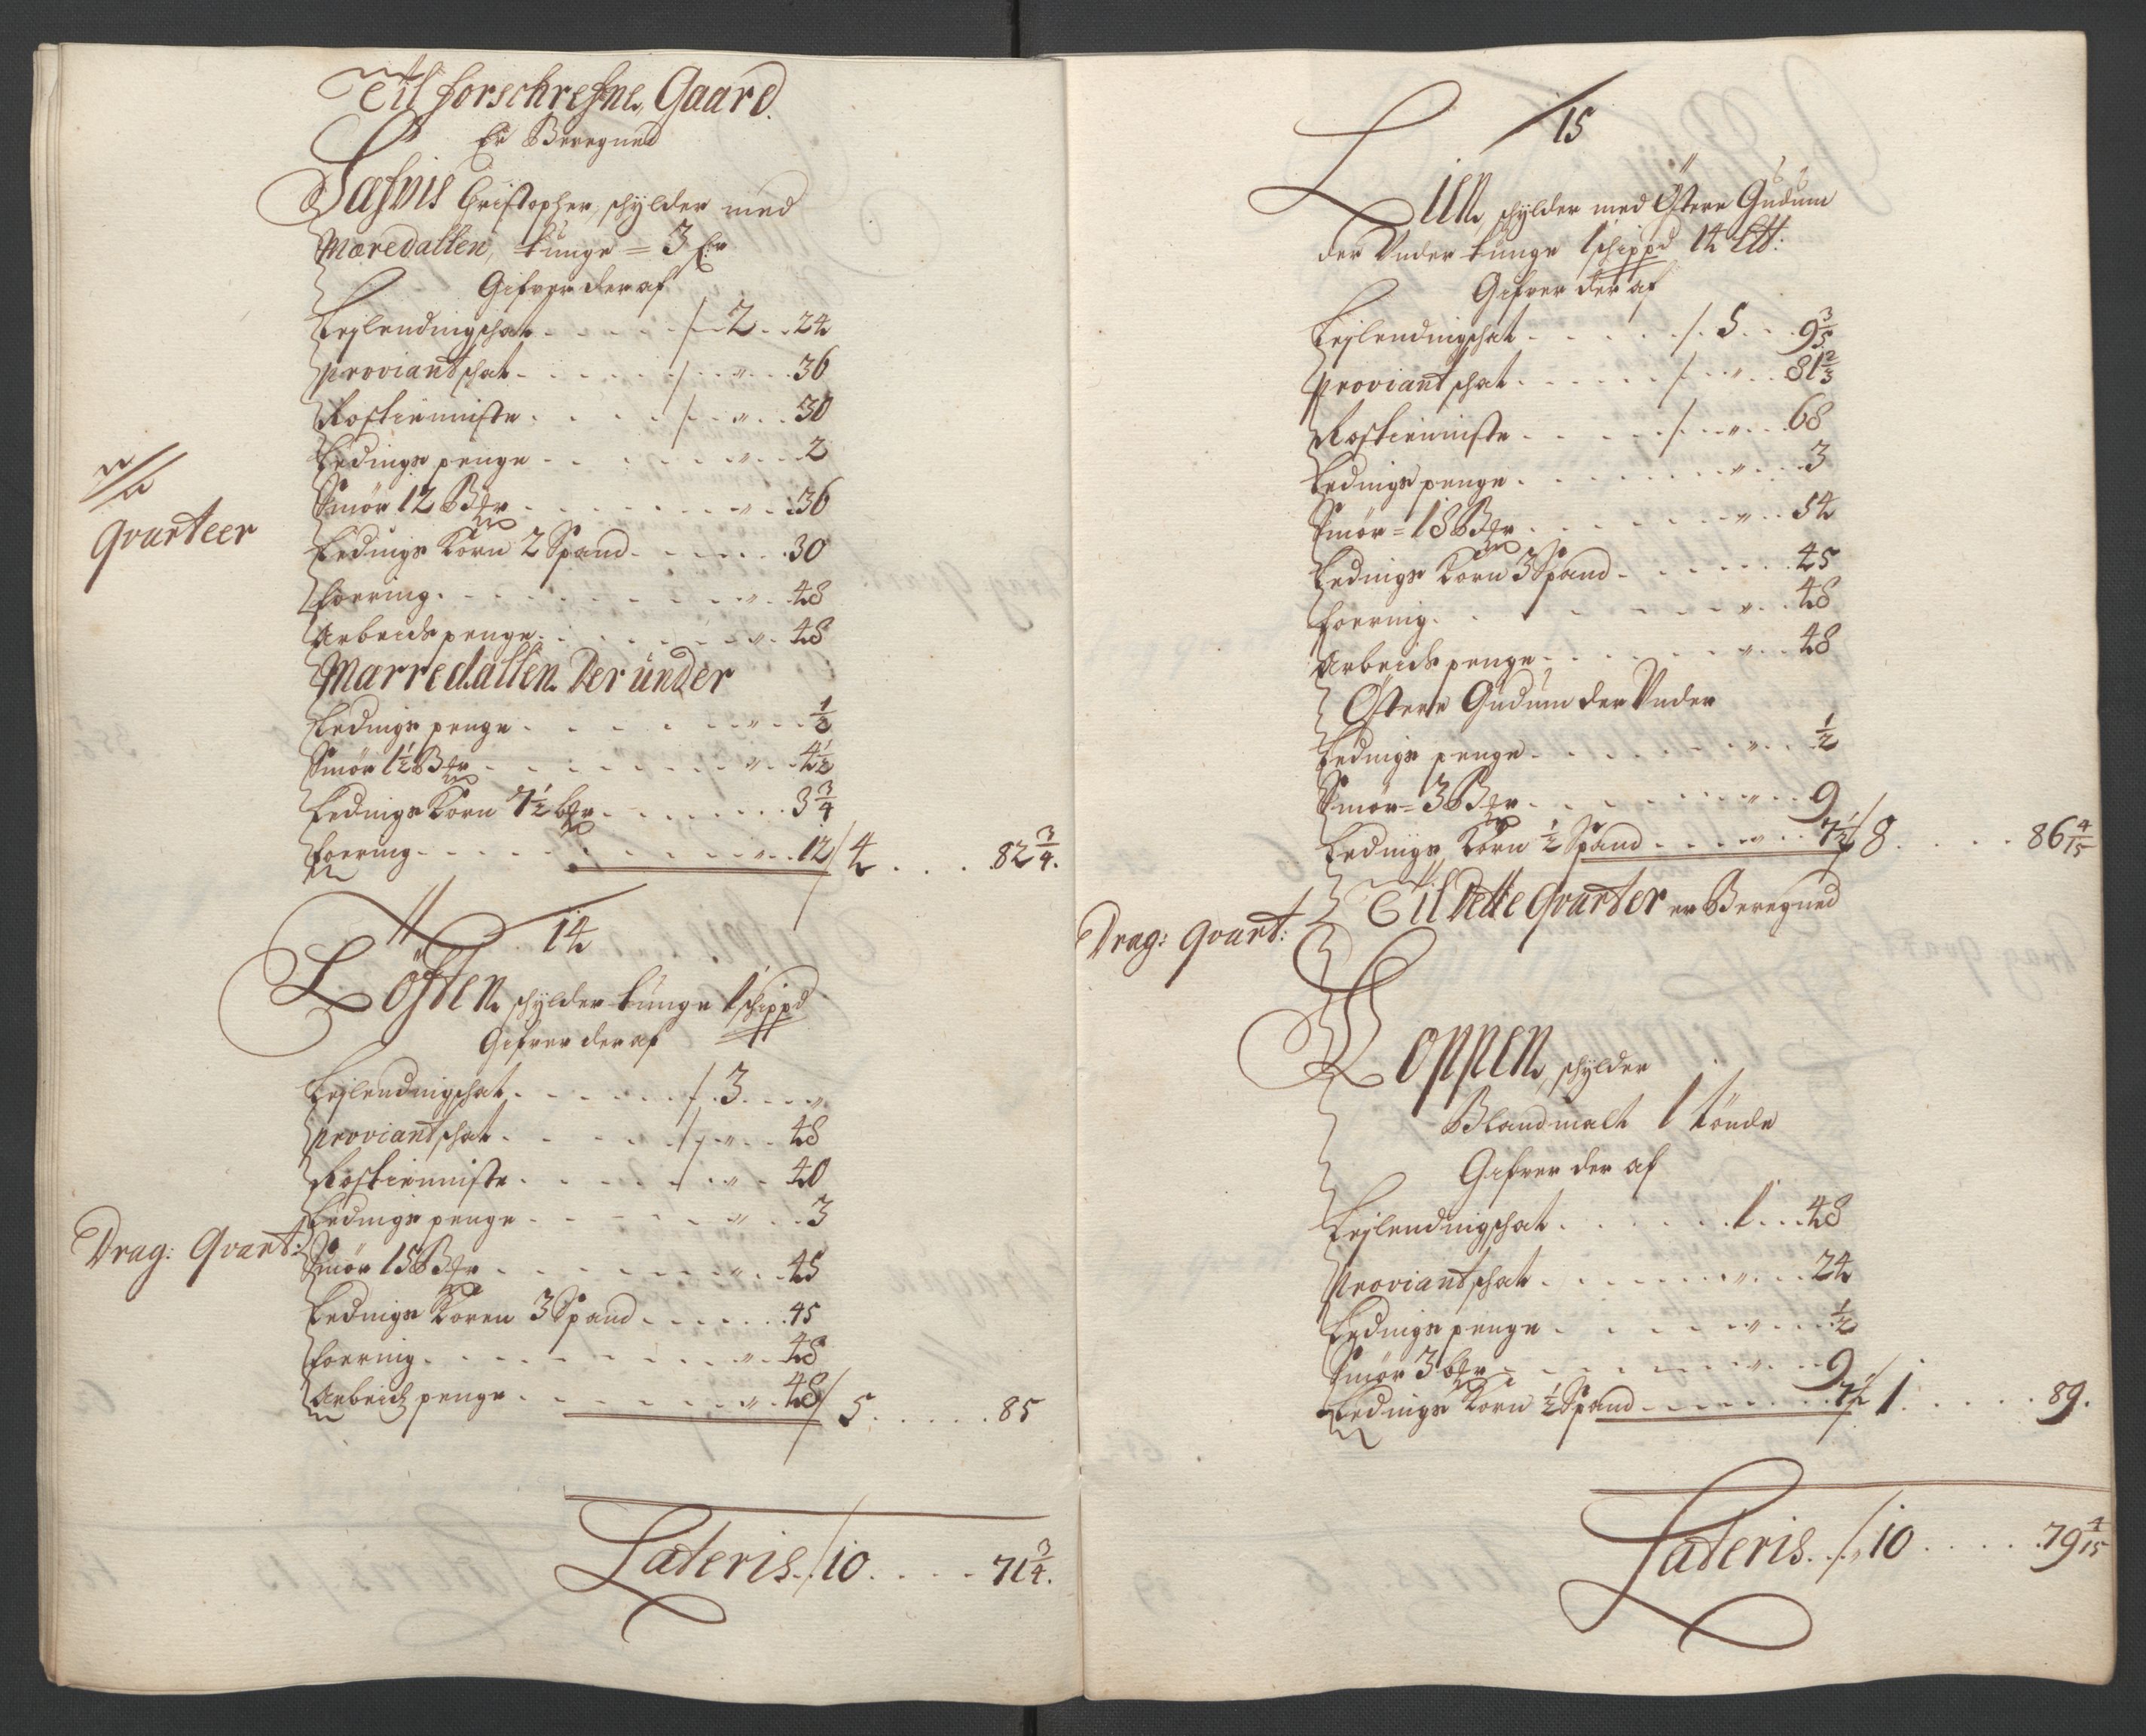 Til forschrefne Gaard
Er Beregned
Safvis Christopher, schylder med
Mæredallen, tunge = 3 Er
Gifver der af
Leilendingschat / 2 24
Proviantschat / " 36
Rostienniste / " 30
Ledings penge " 2
Smör 12 Bgr " 36
Ledings Korn 2 Spand 30
Qvarteer
foering " 48
Arbeids penge " 48
Marredallen Der ünder
Ledings penge " ½
Smör 1½ Bgr " 4½
Ledings Korn 7½ bgr 3¾
foering " 12 / 4 82¾.
14
Löften schylder tünge 1 schippd
Gifver der af
Leilendingschat / 3 "
Proviantschat / " 48
Rostienniste / " 40
Ledings penge " 3
Drag: Qvart:
Smör 15 Bgr " 45
Ledings Koren 3 Spand 45
foering " 48
Arbeids penge " 48 / 5 85
Lateris / 10 71¾.
15
Lien, schylder med Östere Gudum
der Vnder tünge 1 schippd 14 Ltt:
Gifver der af
Leilendingschat / 5 9 3/5
Proviantschat / " 81⅔
Rostienniste / " 68
Ledings penge " 3
Smör = 18 Bgr " 54
Ledings Korn 3 Spand 45
foering " 48
Arbeids penge " 48
Östere Gudum der Vnder
Ledings penge " ½
Smör = 3 Bgr " 9
Ledings Korn ½ Spand " 7½ / 8 86 4/15
Til Dette Qvarter er Beregned
Drag: Qvart:
Koppen, schylder
Blandmalt 1 tönde
Gifver der af
Leilendingschat 1 48
Proviantschat " 24
Ledings penge " ½
Smör 3 bgr " 9
Ledings Korn ½ Spand 7½ / 1 89.
Lateris / 10 79 4/15